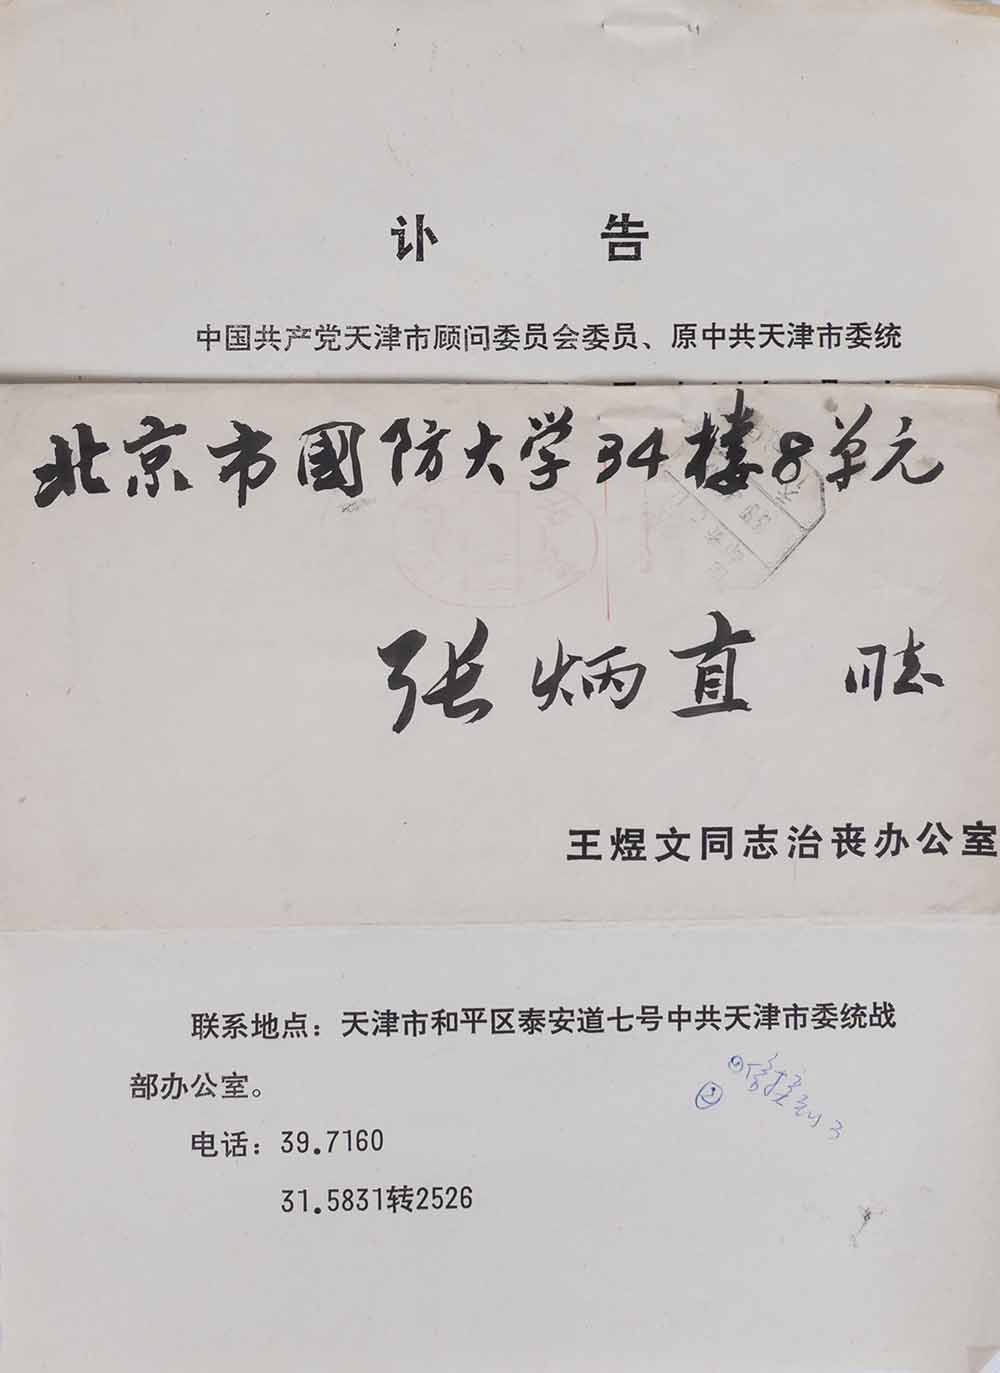 讣 告
中国共产党天津市顾问委员会委员、原中共天津市委统
北京市國防大学34楼8单元
张炳直 同志
王煜文同志治丧办公室
联系地点：天津市和平区泰安道七号中共天津市委统战
部办公室。
电话：39.7160
31.5831转2526